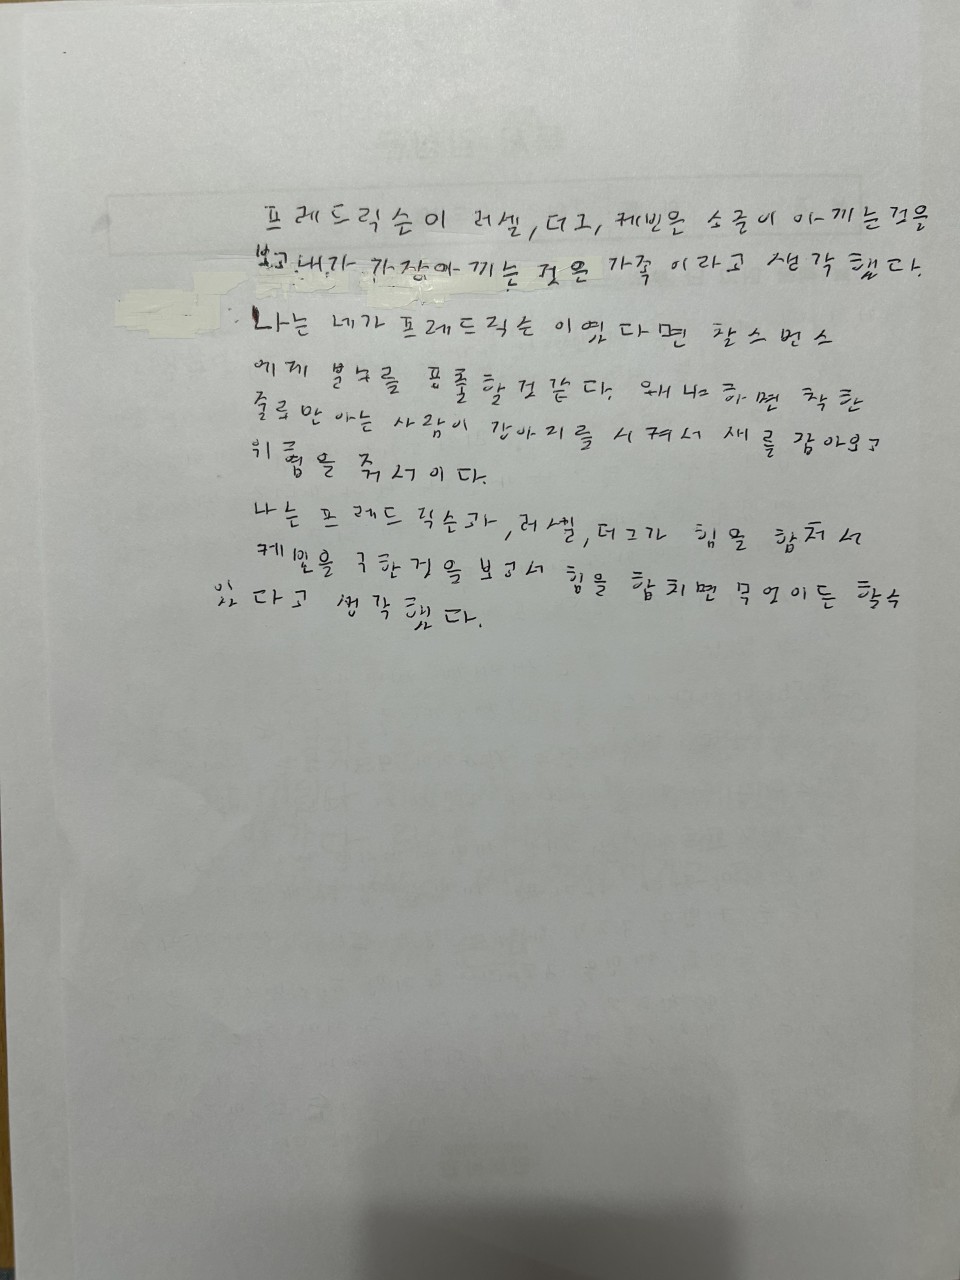 프레드릭슨이 러셀, 더그, 케빈은 소중이 아끼는것을
보고 내가 가장 아끼는 것은 가족 이라고 생각 했다.
나는 네가 프레드릭슨 이였 다면 찰스먼스
에게 분노를 표출 할 것 같다. 왜냐 하면 착한
줄로만 아는 사람이 강아지를 시켜서 새를 잡아오고
위협을 줘서이다.
나는 프레드릭슨과, 러셀, 더그가 힘을 합처서
케빈을 구한것을 보고서 힘을 합치면 무엇이든 할수
있다고 생각 했다.